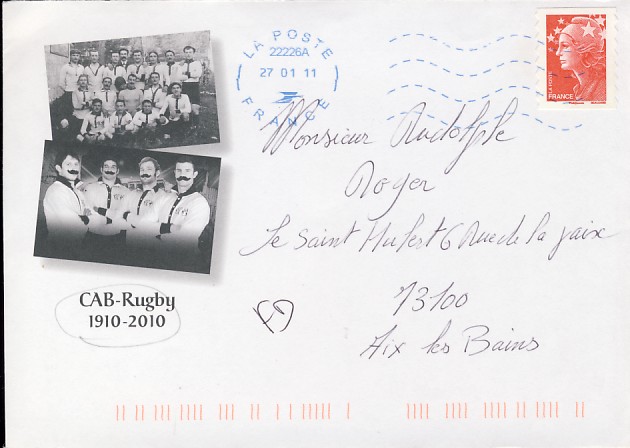 LA POSTE
22226A
27 01 11
FRANCE
LA POSTE
FRANCE
Monsieur Rudolphe
Roger
Le Saint Hubert 6 Rue de la paix
73100
Aix les Bains
CAB-Rugby
1910-2010